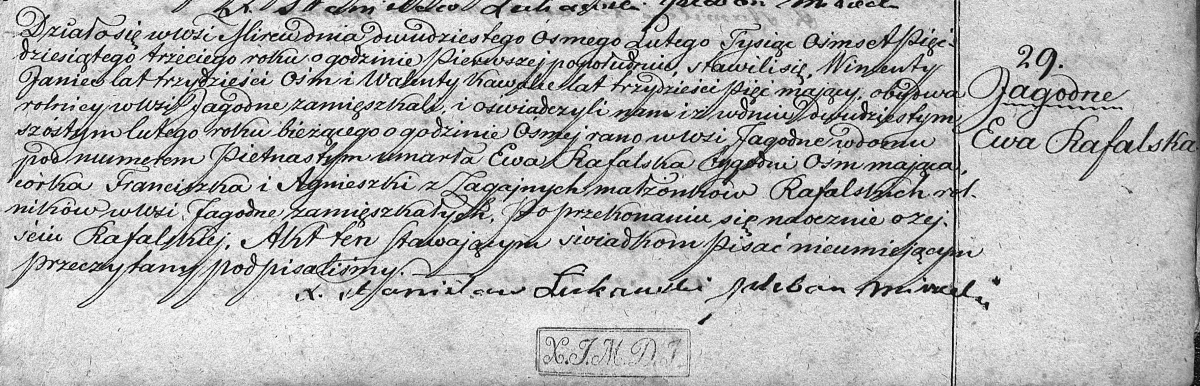 X. Stanisław Łukawski pleban Mirecki
Działo się w wsi Mircu dnia dwudziestego Osmego Lutego Tysiąc Osmset Pięć-
dziesiątego trzeciego roku o godzinie Pierwszej popołudniu, stawili się Wincenty
Janiec lat trzydzieści Osm i Walenty Kawalec lat trzydzieści Pięć mający, obydwa
rolnicy w Wsi Jagodne zamięszkali, i oswiadczyli nam iż w dniu dwudziestym
szostym lutego roku bieżącego o godzinie Osmej rano w Wsi Jagodne w domu
pod numerem Piętnastym umarła Ewa Rafalska tygodni Osm mająca
corka Franciszka i Agnieszki z Zagajnych małżonków Rafalskich rol-
ników w Wsi Jagodne zamięszkałych. Po przekonaniu się naocznie o zej-
sciu Rafalskiej, Akt ten stawającym swiadkom Pisać nieumiejącym
przeczytany podpisaliśmy.
X. Stanisław Łukawski pleban Mirecki
29.
Jagodne
Ewa Rafalska
X.I.M.D.1.